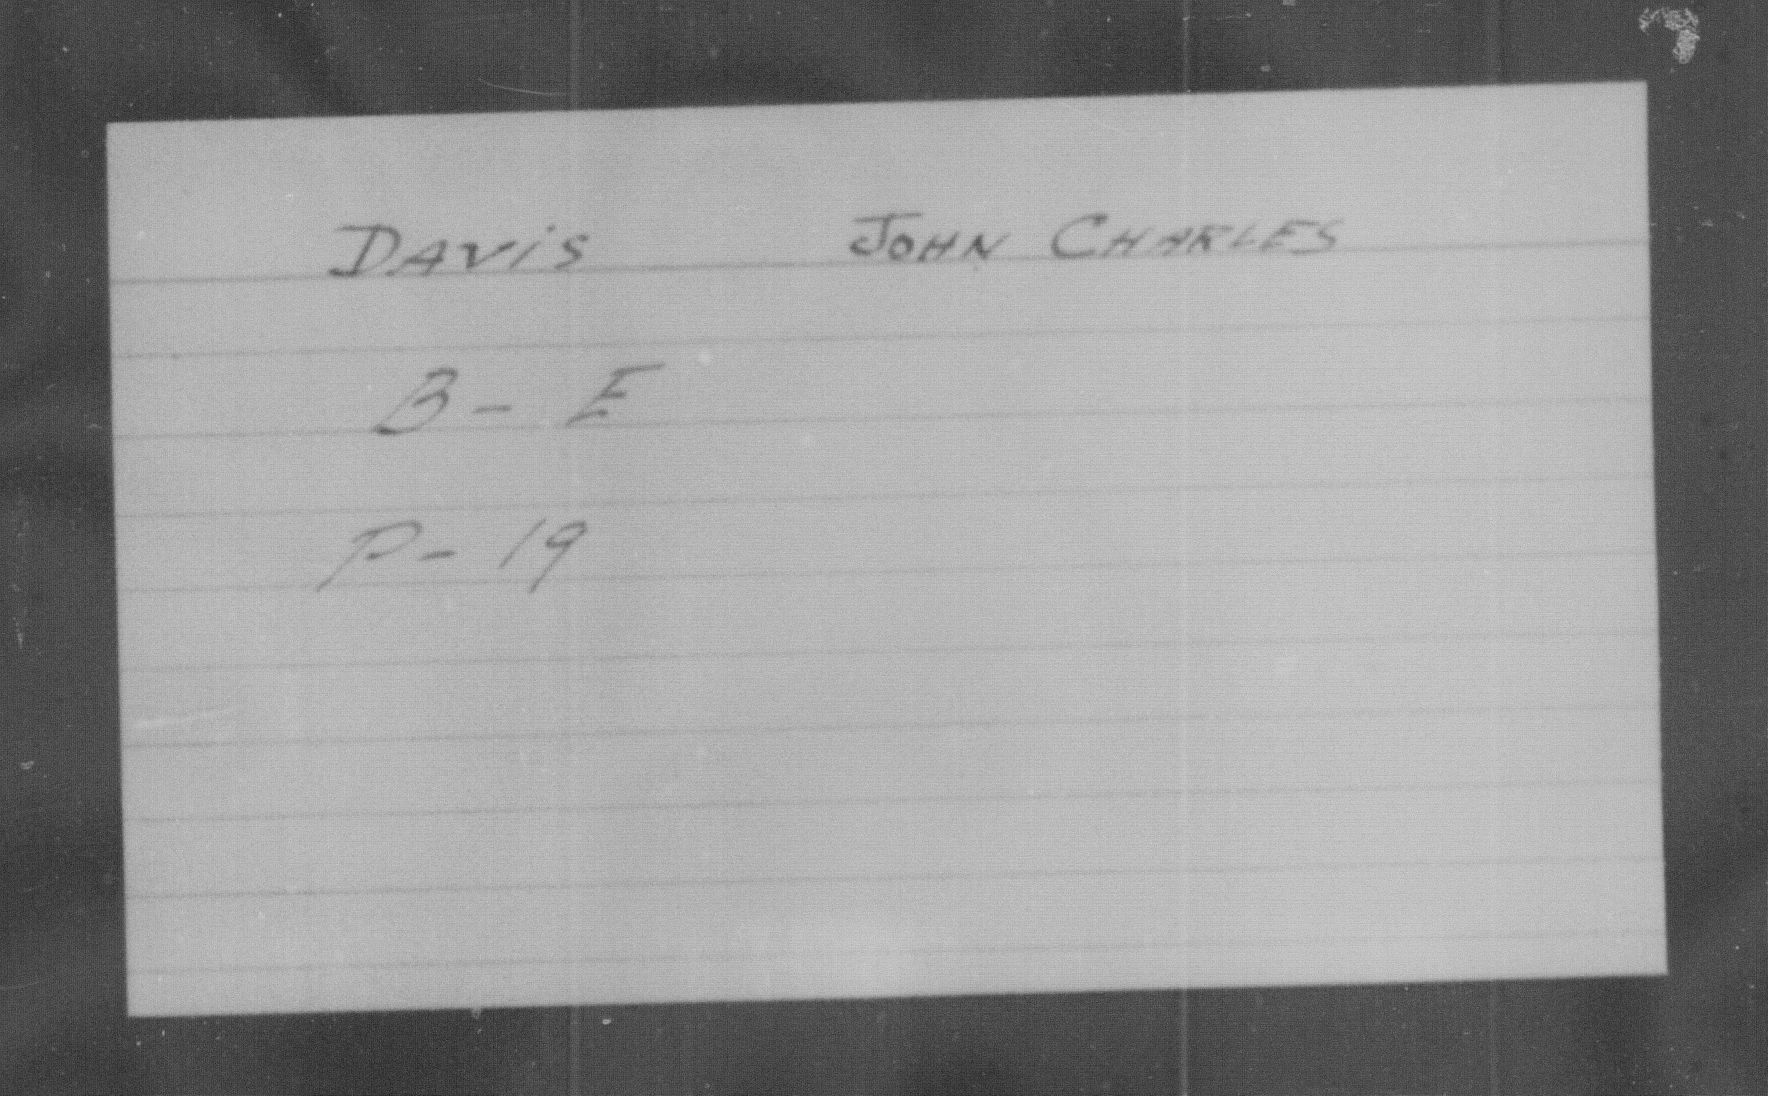 DAVIS JOHN CHARLES
B - E
P - 19